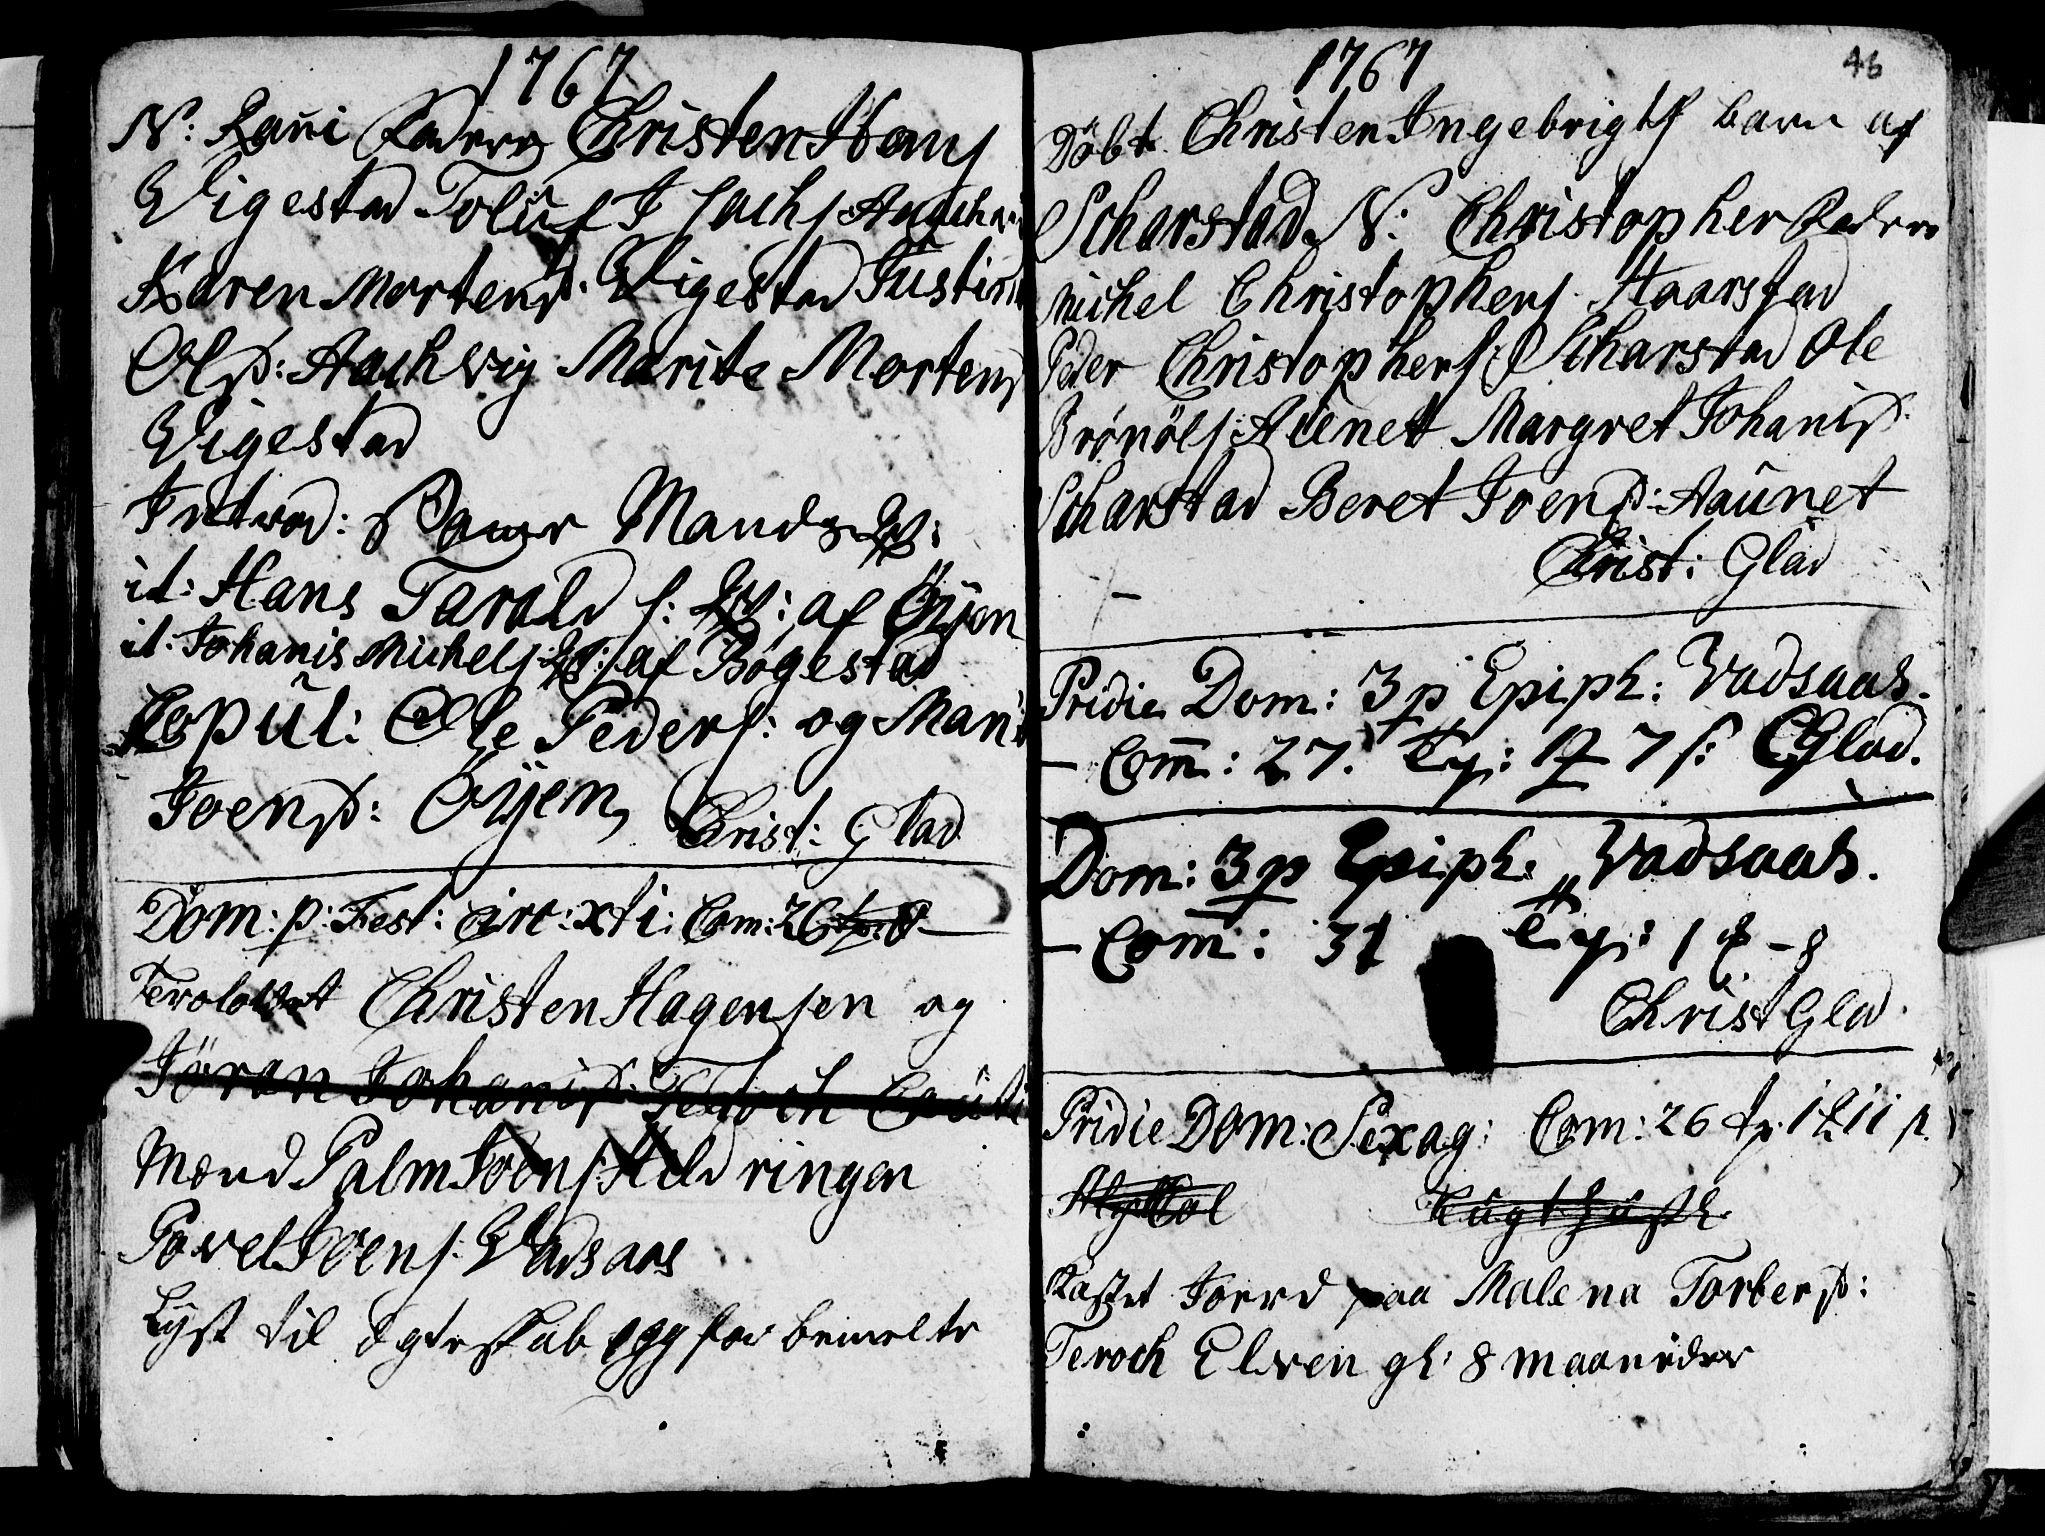 1767
N: Rani Faddere Christen Hans
Vigestad Toluf I sachs Aachvi
Karen Mortensd. Vigestad Justin
Olsd: Aachvig Marite Mortensd
Vigestad
Introd:
it: Hans Tarald s: af Öyen
it. Johanis Michels: af Bögestad
Copul: Ole Peders: og Mari
Joensd: Öyen
Christ: Glad
Dom: p: Fest: circ: xti: Com: 26
Trolovet Christen Hagensen og
Jören Johanisd: Teroch Cauti
Mænd Palm Joens Hildringen
Povel Joens: Vadsaas
Lyst til Egteskab for bemelte
1767
46
Döbt Christen Ingebrigts barn af
Scharstad N: Christopher Faddere
Michel Christophers. Haarstad
Peder Christophers: Scharstad Ole
Brönöls Aunet Margret Johanisd.
Scharstad Beret Joensd: Aaunet
Christ: Glad
Pridie Dom: 3 p Epiph: Vadsaas.
Com: 27. 7 s: CGlad.
Dom: 3 p Epiph: Vadsaas.
Com: 31 8
Christ Glad.
Pridie Dom: Sexag: Com: 26
Kastet Jord paa Malena Torbersd:
Teroch Elven gl: 8 maaneder